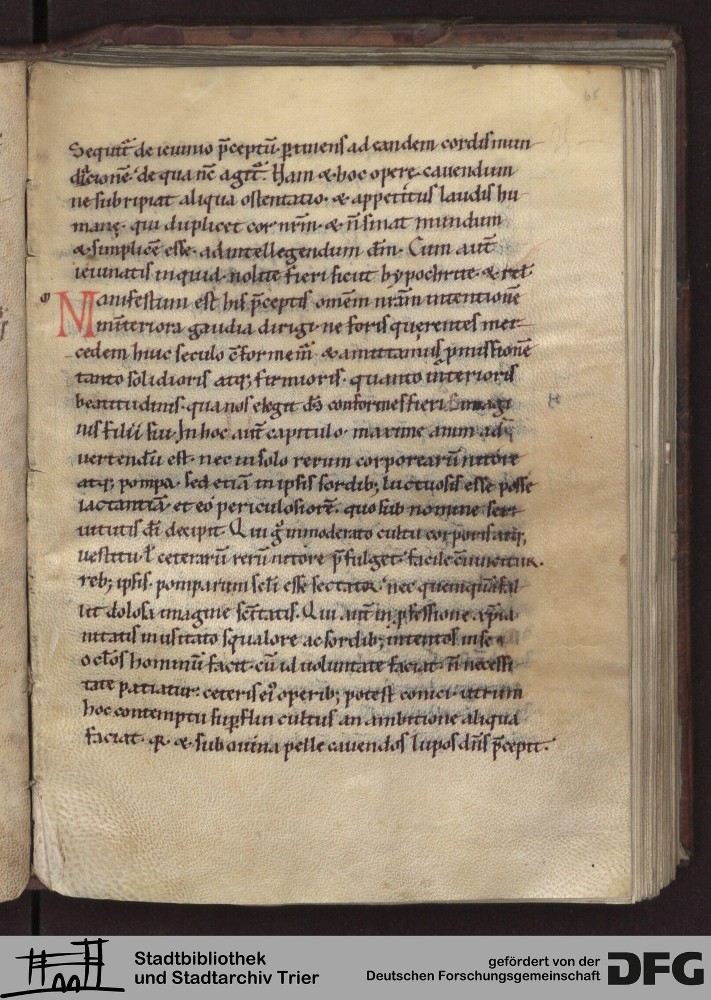 65
Sequit̄ de ieiunio p̄ceptū. ꝑtinens ad eandem cordis mun
dicionē. de qua nc̄ agit̄. Nam & hoc opere cauendum
ne subripiat aliqua ostentatio. & appetitus laudis hu
manę. qui duplicet cor nrm̄. & n̄ sinat mundum
& simplicē esse. ad intellegendum dm̄. Cum aut̄
ieiunatis inquid. nolite fieri sicut hypochrite. & rel̄.
Manifestum est his p̄ceptis omēm nrām intentionē
in interiora gaudia dirigi. ne foris querentes mer
cedem huic seculo
tanto solidioris atq; firmioris. quanto interioris
beatitudinis. qua nos elegit ds̄ conformes fieri imagi
nis filii sui. In hoc aut̄ capitulo. maxime
uertendū est. nec in solo rerum corporearū nitore
atq; pompa. sed etiā in ipsis sordib; luctuosis esse posse
iactantiā. et eo periculosiorē. quo sub nomine ser
uitutis dī decipit. Qui gͦ inmoderato cultu corporis atq;
uestitu. ł ceterarū rerū nitore p̄fulget. facile cōuincitur.
reb; ipsis pomparum sclī esse sectator. nec quemquā fal
lit dolosa imagine sc̄tatis. Qui aut̄ in ꝓfessione xp̄ia
nitatis inusitato squalore ac sordib; intentos in se
oclōs hominū facit. cū id uoluntate faciat. n̄ necessi
tate patiatur. ceteris ei operib; potest conici. utrum
hoc contemptu suꝑflui cultus an ambitione aliqua
faciat. & sub ouina pelle cauendos lupos dn̄s p̄cepit.
Stadtbibliothek
und Stadtarchiv Trier
gefördert von der
Deutschen Forschungsgemeinschaft
DFG